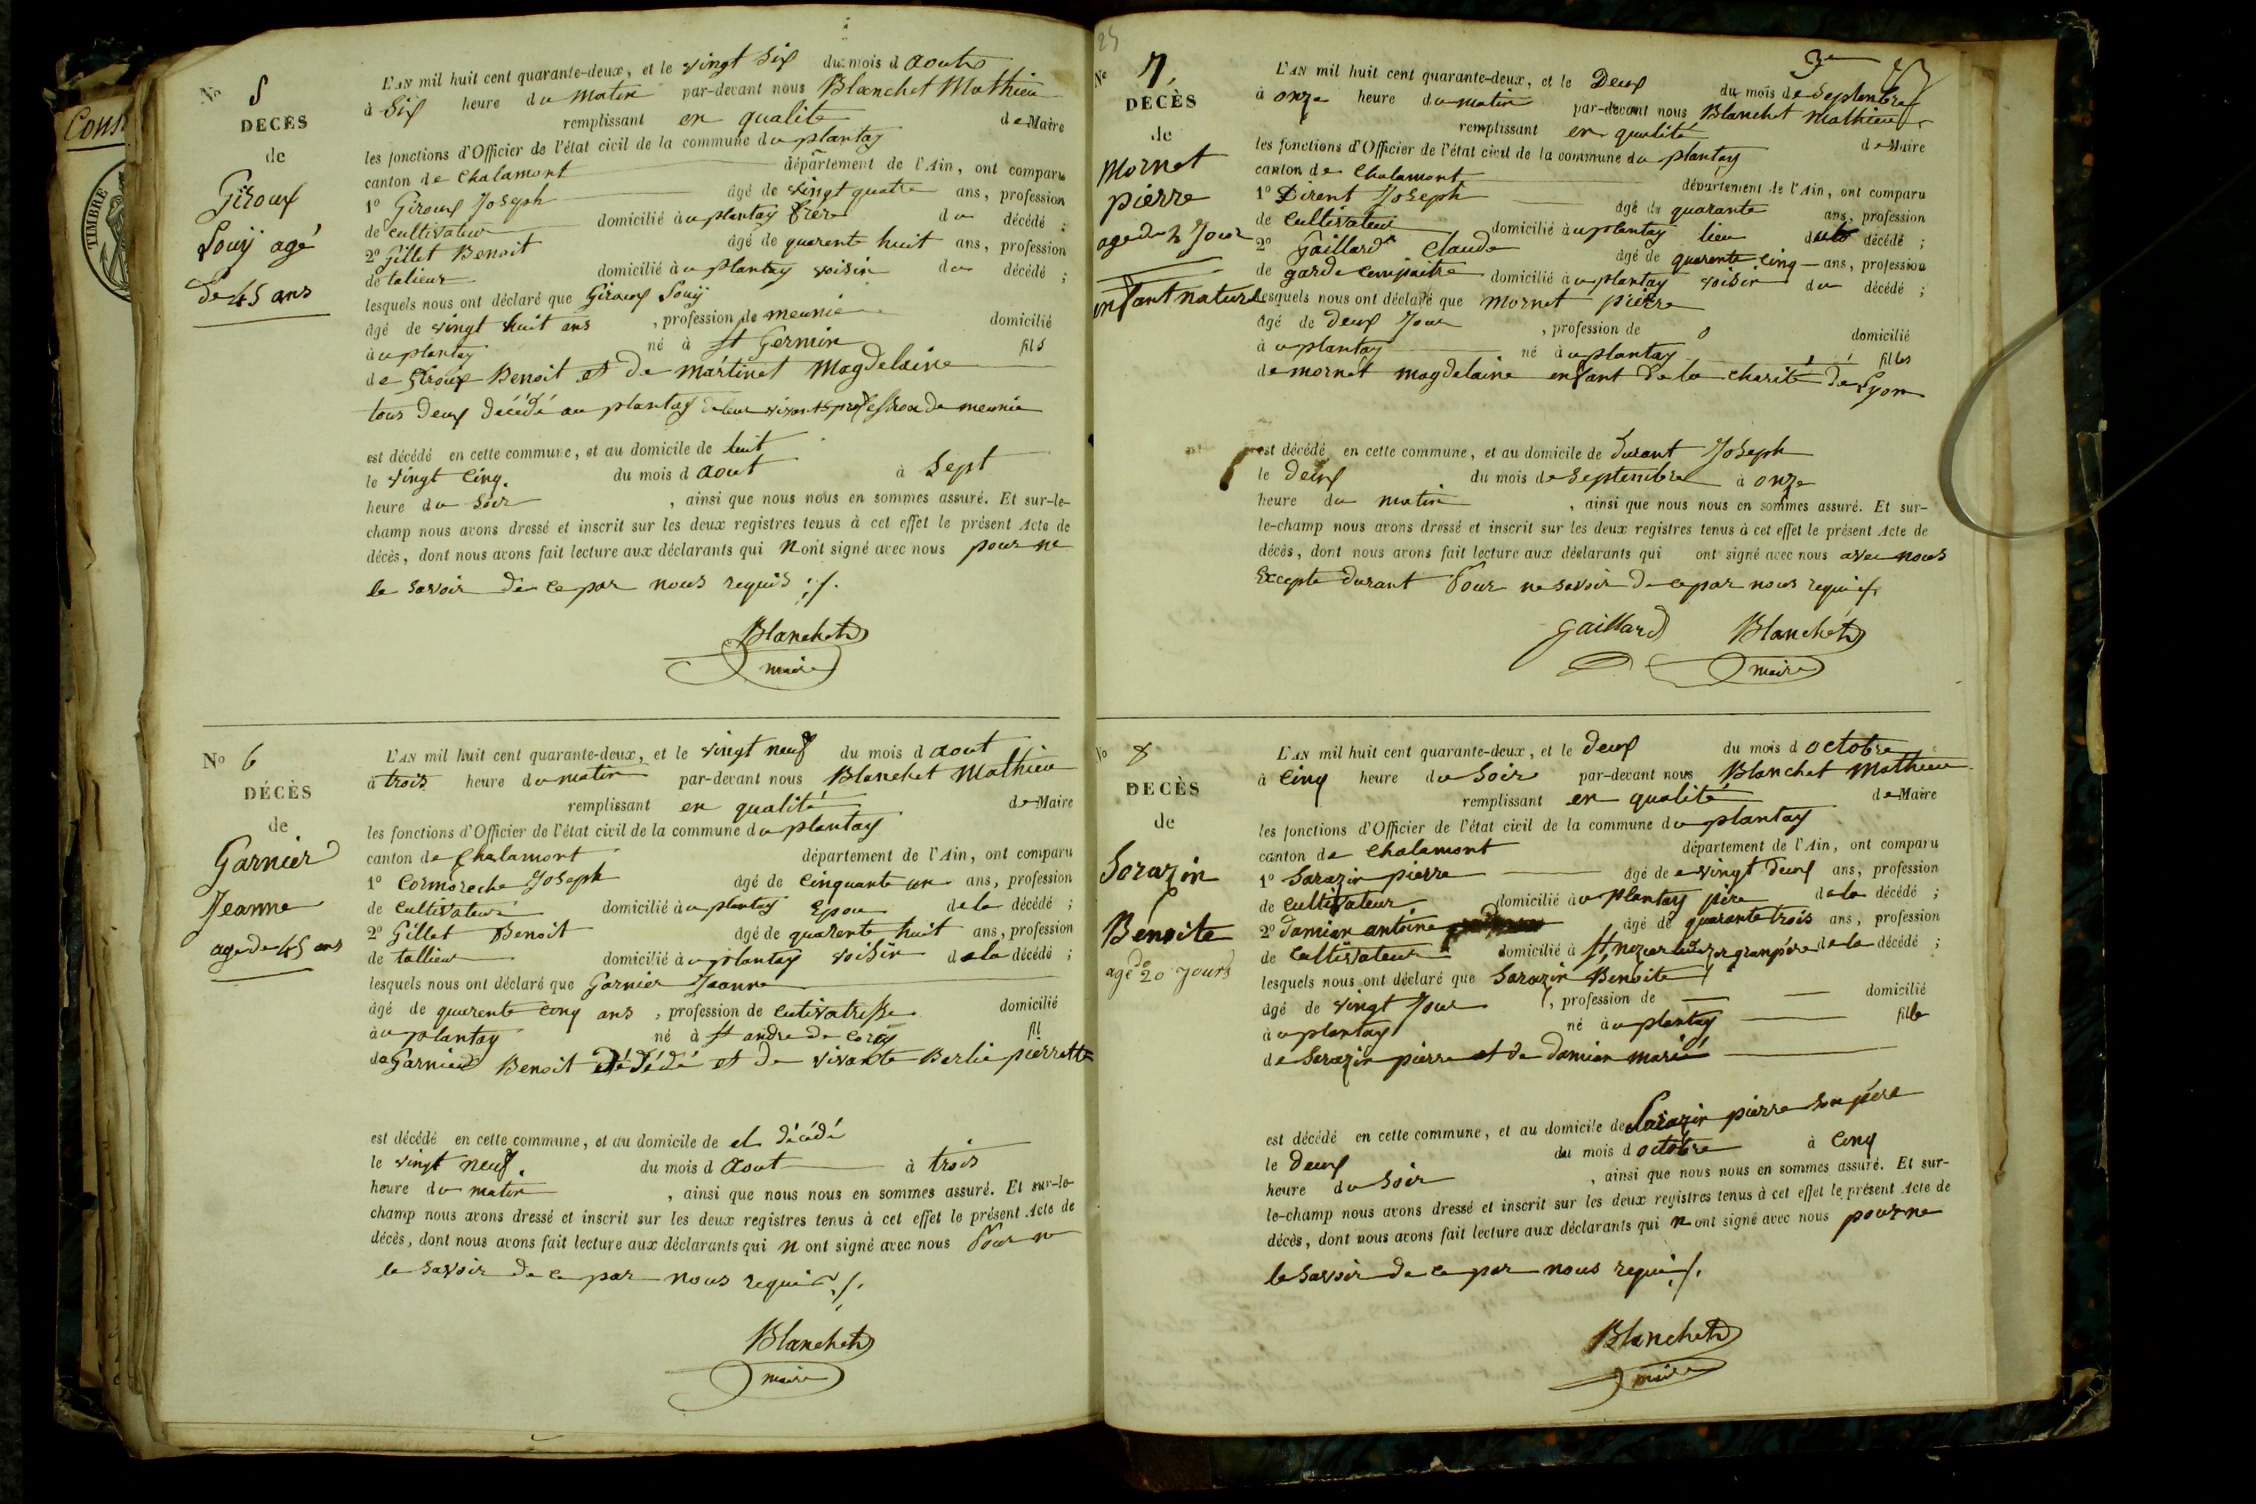 Cons
TIMBRE
No 5
DÉCÈS
de
Giroux
Louij agé
de 45 ans
L'AN mil huit cent quarante-deux, et le vingt Six du mois d aout
à Six heure du matin par-devant nous Blanchet Mathieu
remplissant en qualité de Maire
les fonctions d'Officier de l'état civil de la commune du plantay
canton de Chalamont département de l'Ain, ont comparu
1o Giroux Joseph âgé de vingt quatre ans, profession
de cultivateur domicilié àu plantay frère du décédé ;
2o Gillet Benoit âgé de quarente huit ans, profession
de talieur domicilié àu plantay voisin du décédé ;
lesquels nous ont déclaré que Giroux Louij
âgé de vingt huit ans , profession de meunie domicilié
àu plantay né à St Germin fils
de Giroux Benoit et de Martinet Magdelaine
tous deux décédé au plantay de leur vivant profession de meunie
est décédé en cette commune, et au domicile de luit
le vingt Cinq. du mois d aout à Sept
heure du Soir , ainsi que nous nous en sommes assuré. Et sur-le-
champ nous avons dressé et inscrit sur les deux registres tenus à cet effet le présent Acte de
décès, dont nous avons fait lecture aux déclarants qui n ont signé avec nous pour ne
le savoir de ce par nous requis ;/.
Blanchet
maire
No 6
DÉCÈS
de
Garnier
Jeanne
age de 45 ans
L'AN mil huit cent quarante-deux, et le vingt neuf du mois d aout
à trois heure du matin par-devant nous Blanchet Mathieu
remplissant en qualité de Maire
les fonctions d'Officier de l'état civil de la commune du plantay
canton de Chalamont département de l'Ain, ont comparu
1o Cormoreche Joseph âgé de Cinquante un ans, profession
de Cultivateur domicilié àu plantay Epou de la décédé ;
2o Gillet Benoit âgé de quarente huit ans, profession
de tallieur domicilié àu plantay voisin de la décédé ;
lesquels nous ont déclaré que Garnier Jeanne
âgé de quarente cinq ans , profession de cutivatresse domicilié
àu plantay né à St andre de corcy fil
de Garnier Benoit décédé et de vivante Berlie pierrette
est décédé en cette commune, et au domicile de el décédé
le vingt neuf. du mois d aout à trois
heure du matin , ainsi que nous nous en sommes assuré. Et sur-le-
champ nous avons dressé et inscrit sur les deux registres tenus à cet effet le présent Acte de
décès, dont nous avons fait lecture aux déclarants qui n ont signé avec nous Pour ne
le savoir de ce par nous requi ./.
Blanchet
maire
25
3e
No 7
DÉCÈS
de
Mornet
pierre
age de 2 Jour
enfant naturel
L'AN mil huit cent quarante-deux, et le Deux du mois de Septembre
à onze heure du matin par-devant nous Blanchet Mathieu
remplissant en qualité de Maire
les fonctions d'Officier de l'état civil de la commune du plantay
canton de Chalamont département de l'Ain, ont comparu
1o Joseph âgé de quarante ans, profession
de Cultivateur domicilié àu plantay lieu décédé ;
2o Gaillard Claude âgé de quarente cinq ans, profession
de garde domicilié àu plantay voisin du décédé ;
lesquels nous ont déclaré que Mornet pierre
âgé de deux Jour , profession de 0 domicilié
à u plantay né àu plantay filles
de mornet magdelaine enfant de la charité de Lyon
est décédé en cette commune, et au domicile de Durant Joseph
le deux du mois de Septembre à onze
heure du matin , ainsi que nous nous en sommes assuré. Et sur-
le-champ nous avons dressé et inscrit sur les deux registres tenus à cet effet le présent Acte de
décès, dont nous avons fait lecture aux déclarants qui ont signé avec nous avec nous
Excepte durant Pour ne savoir de ce par nous requi /.
Gaillard Blanchet
maire
No 8
DÉCÈS
de
Sarazin
Benoite
agé de 20 Jours
L'AN mil huit cent quarante-deux, et le deux du mois d octobre
à Cinq heure du Soir par-devant nous Blanchet Mathieu
remplissant en qualité de Maire
les fonctions d'Officier de l'état civil de la commune du plantay
canton de Chalamont département de l'Ain, ont comparu
1o Sarazin pierre âgé de vingt deux ans, profession
de Cultivateur domicilié àu Plantay père de la décédé ;
2o damian antoine âgé de quarante trois ans, profession
de Cultivateur domicilié à St granpére de la décédé ;
lesquels nous ont déclaré que Sarazin Benoite
âgé de vingt Jour , profession de domicilié
à u plantay né àu plantay fille
de Sarazin pierre et de damian marie
est décédé en cette commune, et au domicile de Sarazin pierre son père
le deux du mois d octobre à Cinq
heure du Soir , ainsi que nous nous en sommes assuré. Et sur-
le-champ nous avons dressé et inscrit sur les deux registres tenus à cet effet le présent Acte de
décès, dont nous avons fait lecture aux déclarants qui n ont signé avec nous pour ne
le savoir de ce par nous requi /.
Blanchet
maire